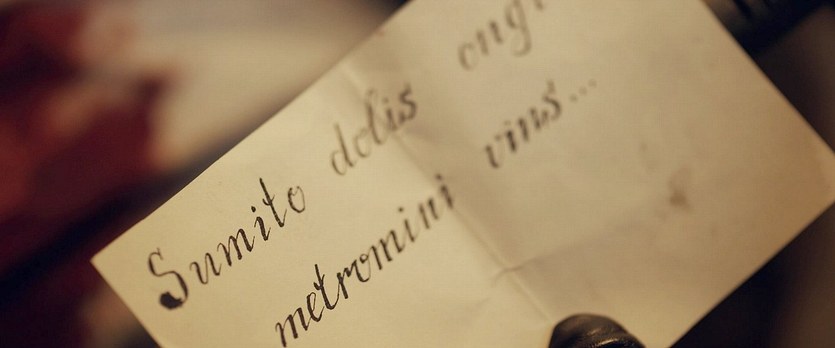 Sumito dolis
metromini vins...